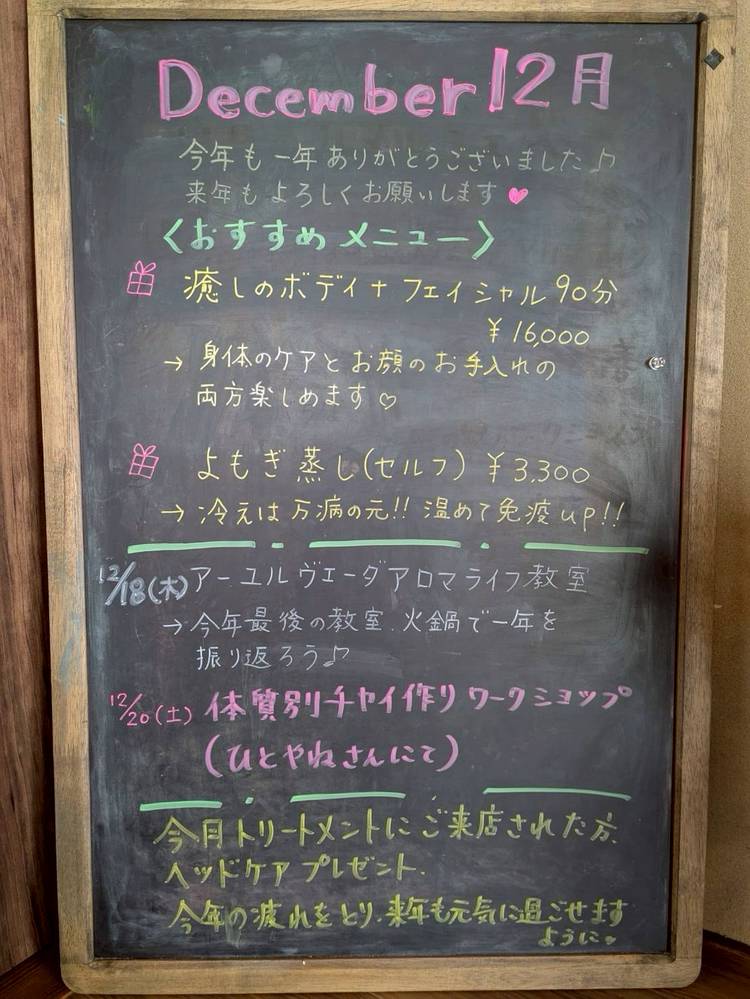 December 12月
今年も一年ありがとうございました♪
来年もよろしくお願いします♥
〈おすすめメニュー〉
癒しのボディ+フェイシャル90分
¥16,000
→身体のケアとお顔のお手入れの
両方楽しめます♡
よもぎ蒸し(セルフ)¥3,300
→冷えは万病の元!!温めて免疫up!!
12/18(木)アーユルヴェーダアロマライフ教室
→今年最後の教室.火鍋で一年を
振り返ろう♪
12/20(土)体質別チャイ作りワークショップ
(ひとやねさんにて)
今月トリートメントにご来店された方、
ヘッドケアプレゼント.
今年の疲れをとり、来年も元気に過ごせます
ように♥